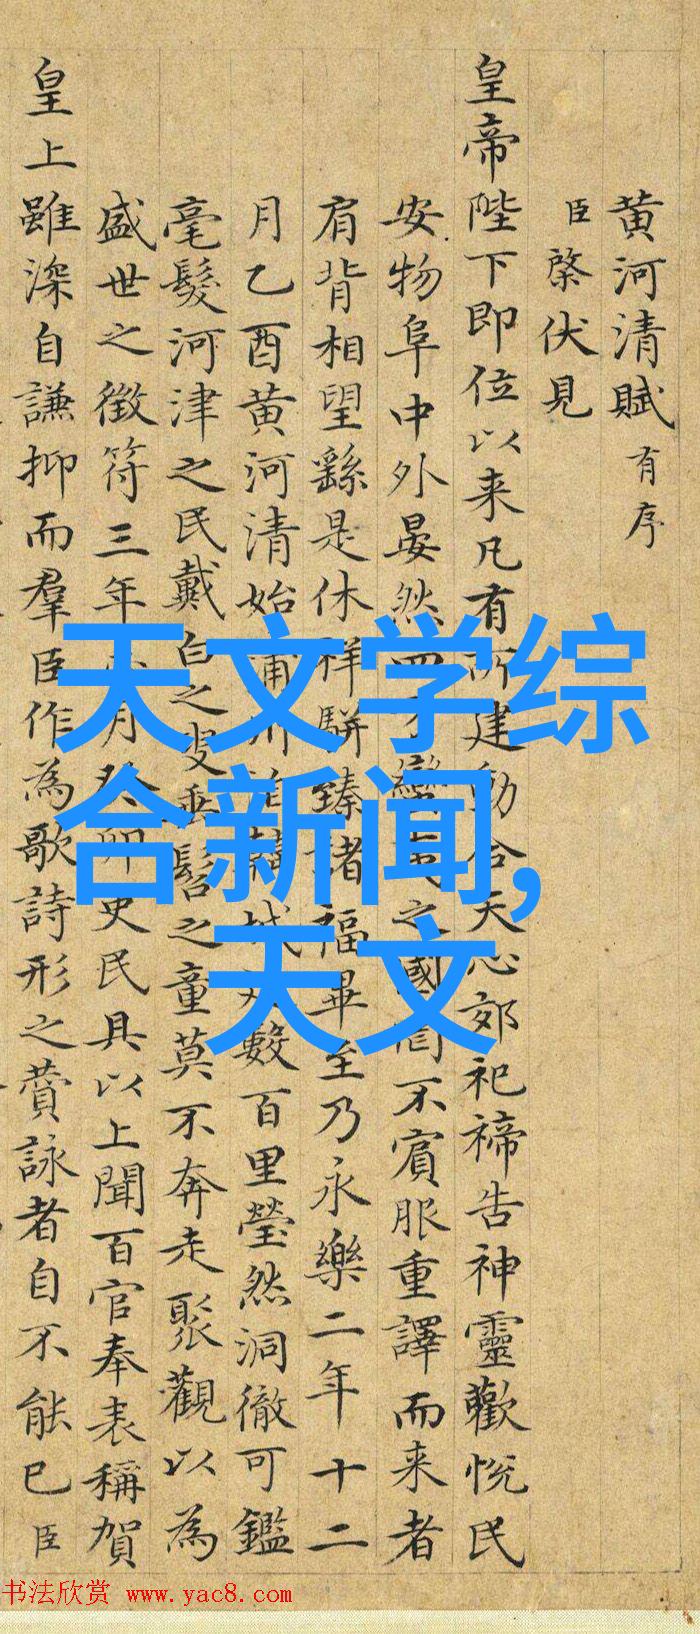 黄河清賦有序
臣棨伏見
皇帝陛下即位以来凡有所建動合天心郊祀禘告神靈歡悅民
安物阜中外晏然四之國不賓服重譯而来者
肩背相望繇是休祥駢臻諸福畢至乃永樂二年十二
月乙酉黄河清始蒲州數百里瑩然洞徹可鑑
毫髮河津之民戴白之叟垂髫之童莫不奔走聚觀以為
盛世之徵符三年月癸卯史民具以上聞百官奉表稱賀
皇上雖深自謙抑而羣臣作為歌詩形之賡詠者自不能已臣
天文学综
合新闻,
天文
书法欣赏 www.yac8.com